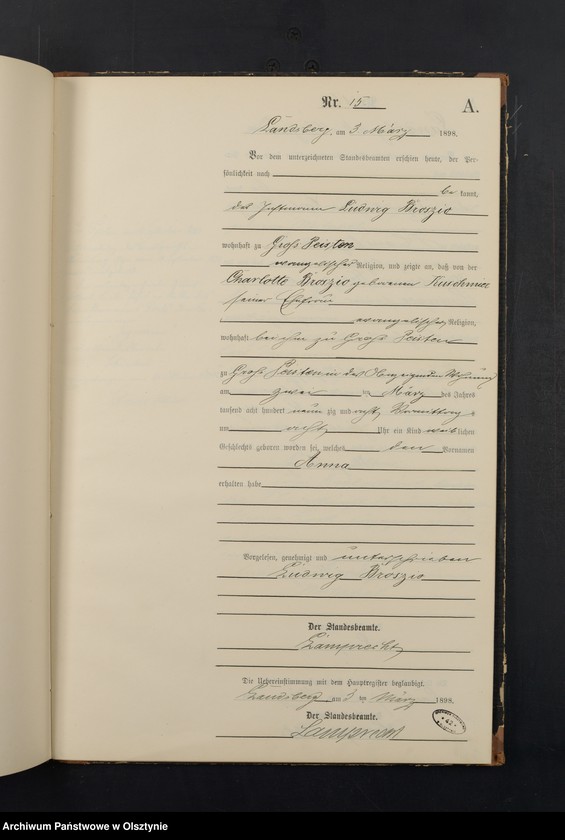 Nr. 15
A.
Landsberg, am 3. März 1898.
Vor dem unterzeichneten Standesbeamten erschien heute, der Per-
sönlichkeit nach
be kannt,
der Instmann Ludwig Broszio
wohnhaft zu Groß Peisten
evangelischer Religion, und zeigte an, daß von der
Charlotte Broszio geborenen
seiner Ehefrau
evangelischer Religion,
wohnhaft bei ihm zu Groß Peisten
zu Groß Peisten in des Wohnung
am zwei ten März des Jahres
tausend acht hundert neun zig und acht Vormittags
um acht Uhr ein Kind weib lichen
Geschlechts geboren worden sei, welches den Vornamen
Anna
erhalten habe
Vorgelesen, genehmigt und unterschrieben
Ludwig Broszio
Der Standesbeamte.
Lamprecht
Die Uebereinstimmung mit dem Hauptregister beglaubigt.
Landsberg, am 3 ten März 1898.
Der Standesbeamte.
Lamprecht
Archiwum Państwowe w Olsztynie